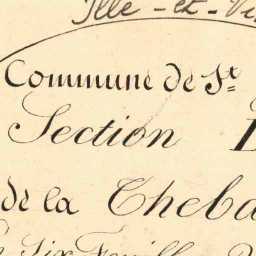 Ille-et-Vi
Commune de St.
Section
de la Theba
Six Feuilles